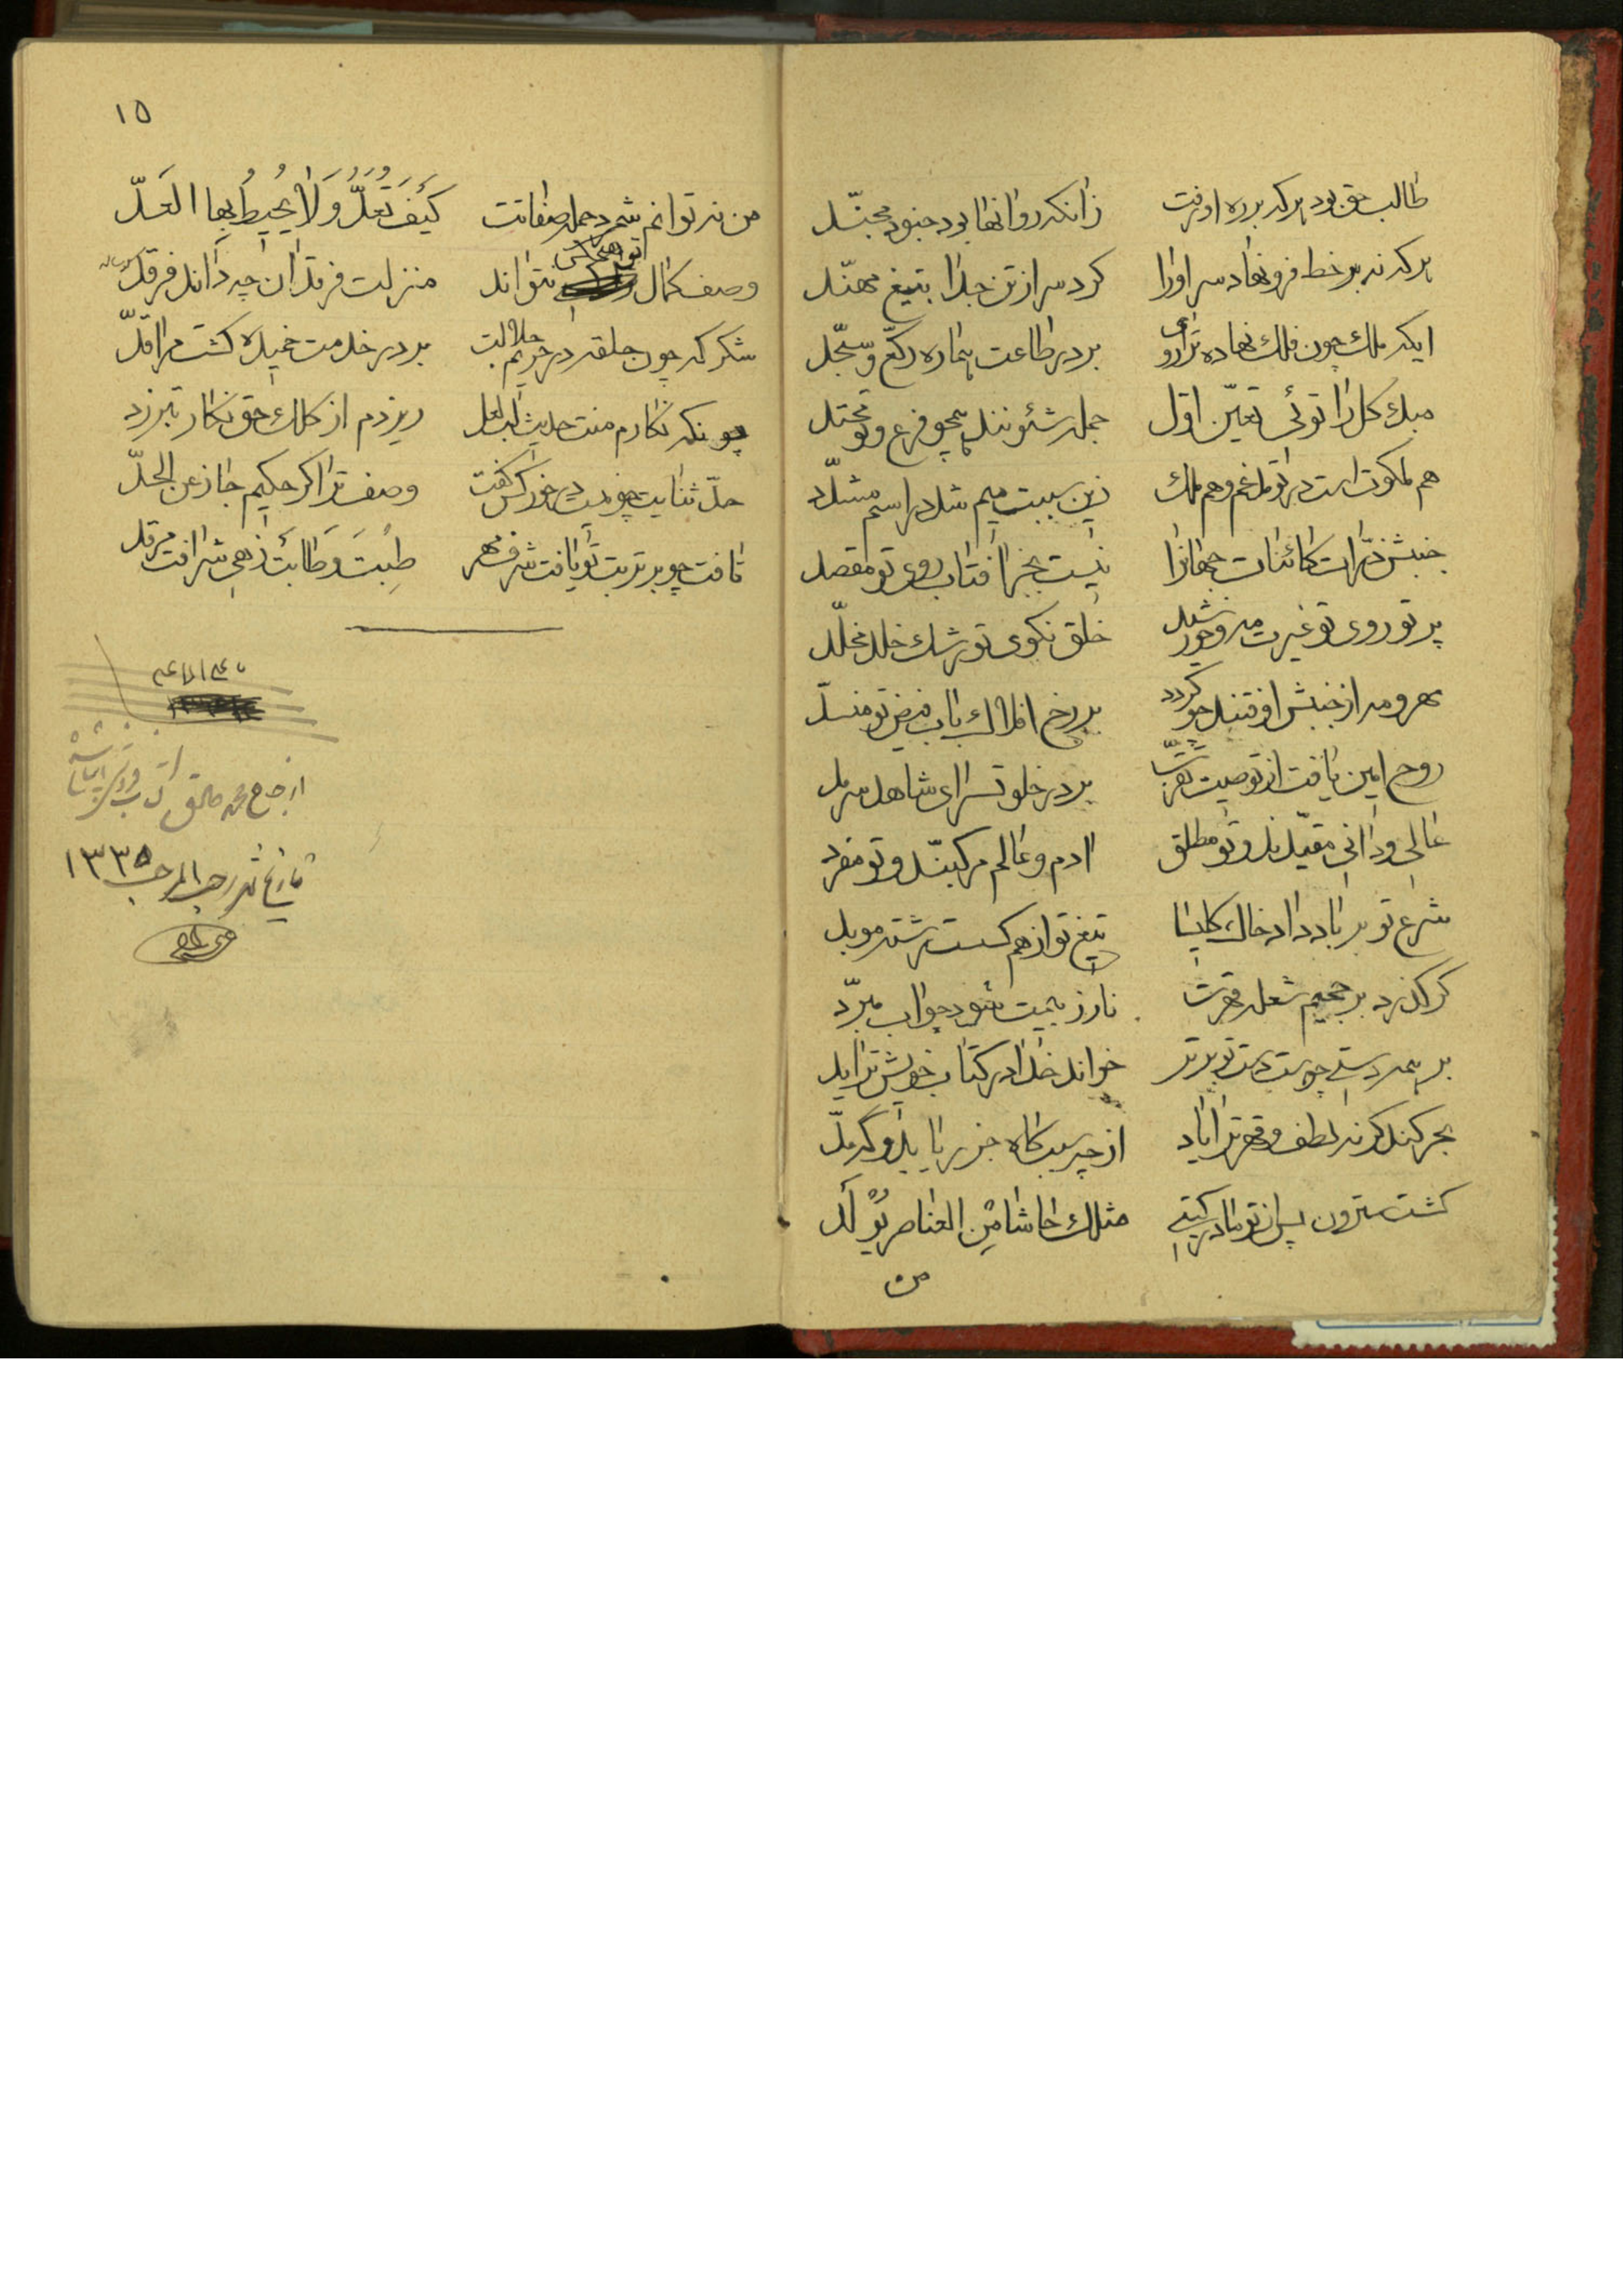 طالب حق بود هر که بر ره او رفت زانکه روانها بود جنود مجنّد
هر که نه بر خط فرو نهاد سر او را کرد سر از تن جدا بتیغ مهنّد
ایکه ملک چون فلک نهاده ترا روی بر در طاعت هماره رکّع و سجّد
مبدء کل را توئی تعیّن اول جمله شئونند همچو فرع و تو محتد
هم ملکوت است در تو مدغم و هم ملک زین سببت میم شد در اسم مشدّد
جنبش ذرّات کائنات جهانرا نیست بجز افتاب روی تو مقصد
پرتو روی تو غیرت مه و خورشید خلق نکوی تو رشک خلد مخلّد
مهر و مه از جنبش اوفتند چو گردد بر رخ افلاک باب فیض تو منسدّ
روح امین یافت از تو صیت تقرّب بر در خلوتسرای شاهد سرمد
عالی و دانی مقیّدند و تو مطلق ادم و عالم مرکّبند و تو مفرد
شرع تو بر باد داد خاک کلیسا تیغ تو از هم گسست رشته موبد
گر گذرد بر جحیم شعله قهرت نار ز بیمت شود چو اب مبرّد
بر همه دستی چو هست دست تو برتر خواند خدا در کتاب خویش ترا ید
بحر کند گر نه لطف و قهر ترا یاد از چه سبب گاه جزر یابد و گه مدّ
گشت سترون پس از تو مادر گیتی مثلک حاشا من العناصر یولد
من
۱۵
من نه توانم شمرد جمله صفاتت کیف تعدّ و لا یحیط بها العدّ
وصف کمال نتواند منزلت فرقدان چه داند فرقد
شکر که چون حلقه در حریم جلالت بر در خدمت خمیده گشت مرا قدّ
چونکه نگارم منت حدیث اب لعل ریزدم از کلک حق نگار تبرزد
حدّ ثنایت چو نیست در خور کس گفت وصف ترا گر حکیم جاز عن الحدّ
تافت چو بر تربت تو یافت شرف مهر طبت و طابت زهی شرافت مرقد
تاریخ شهر رجب المرجب ۱۳۳۵